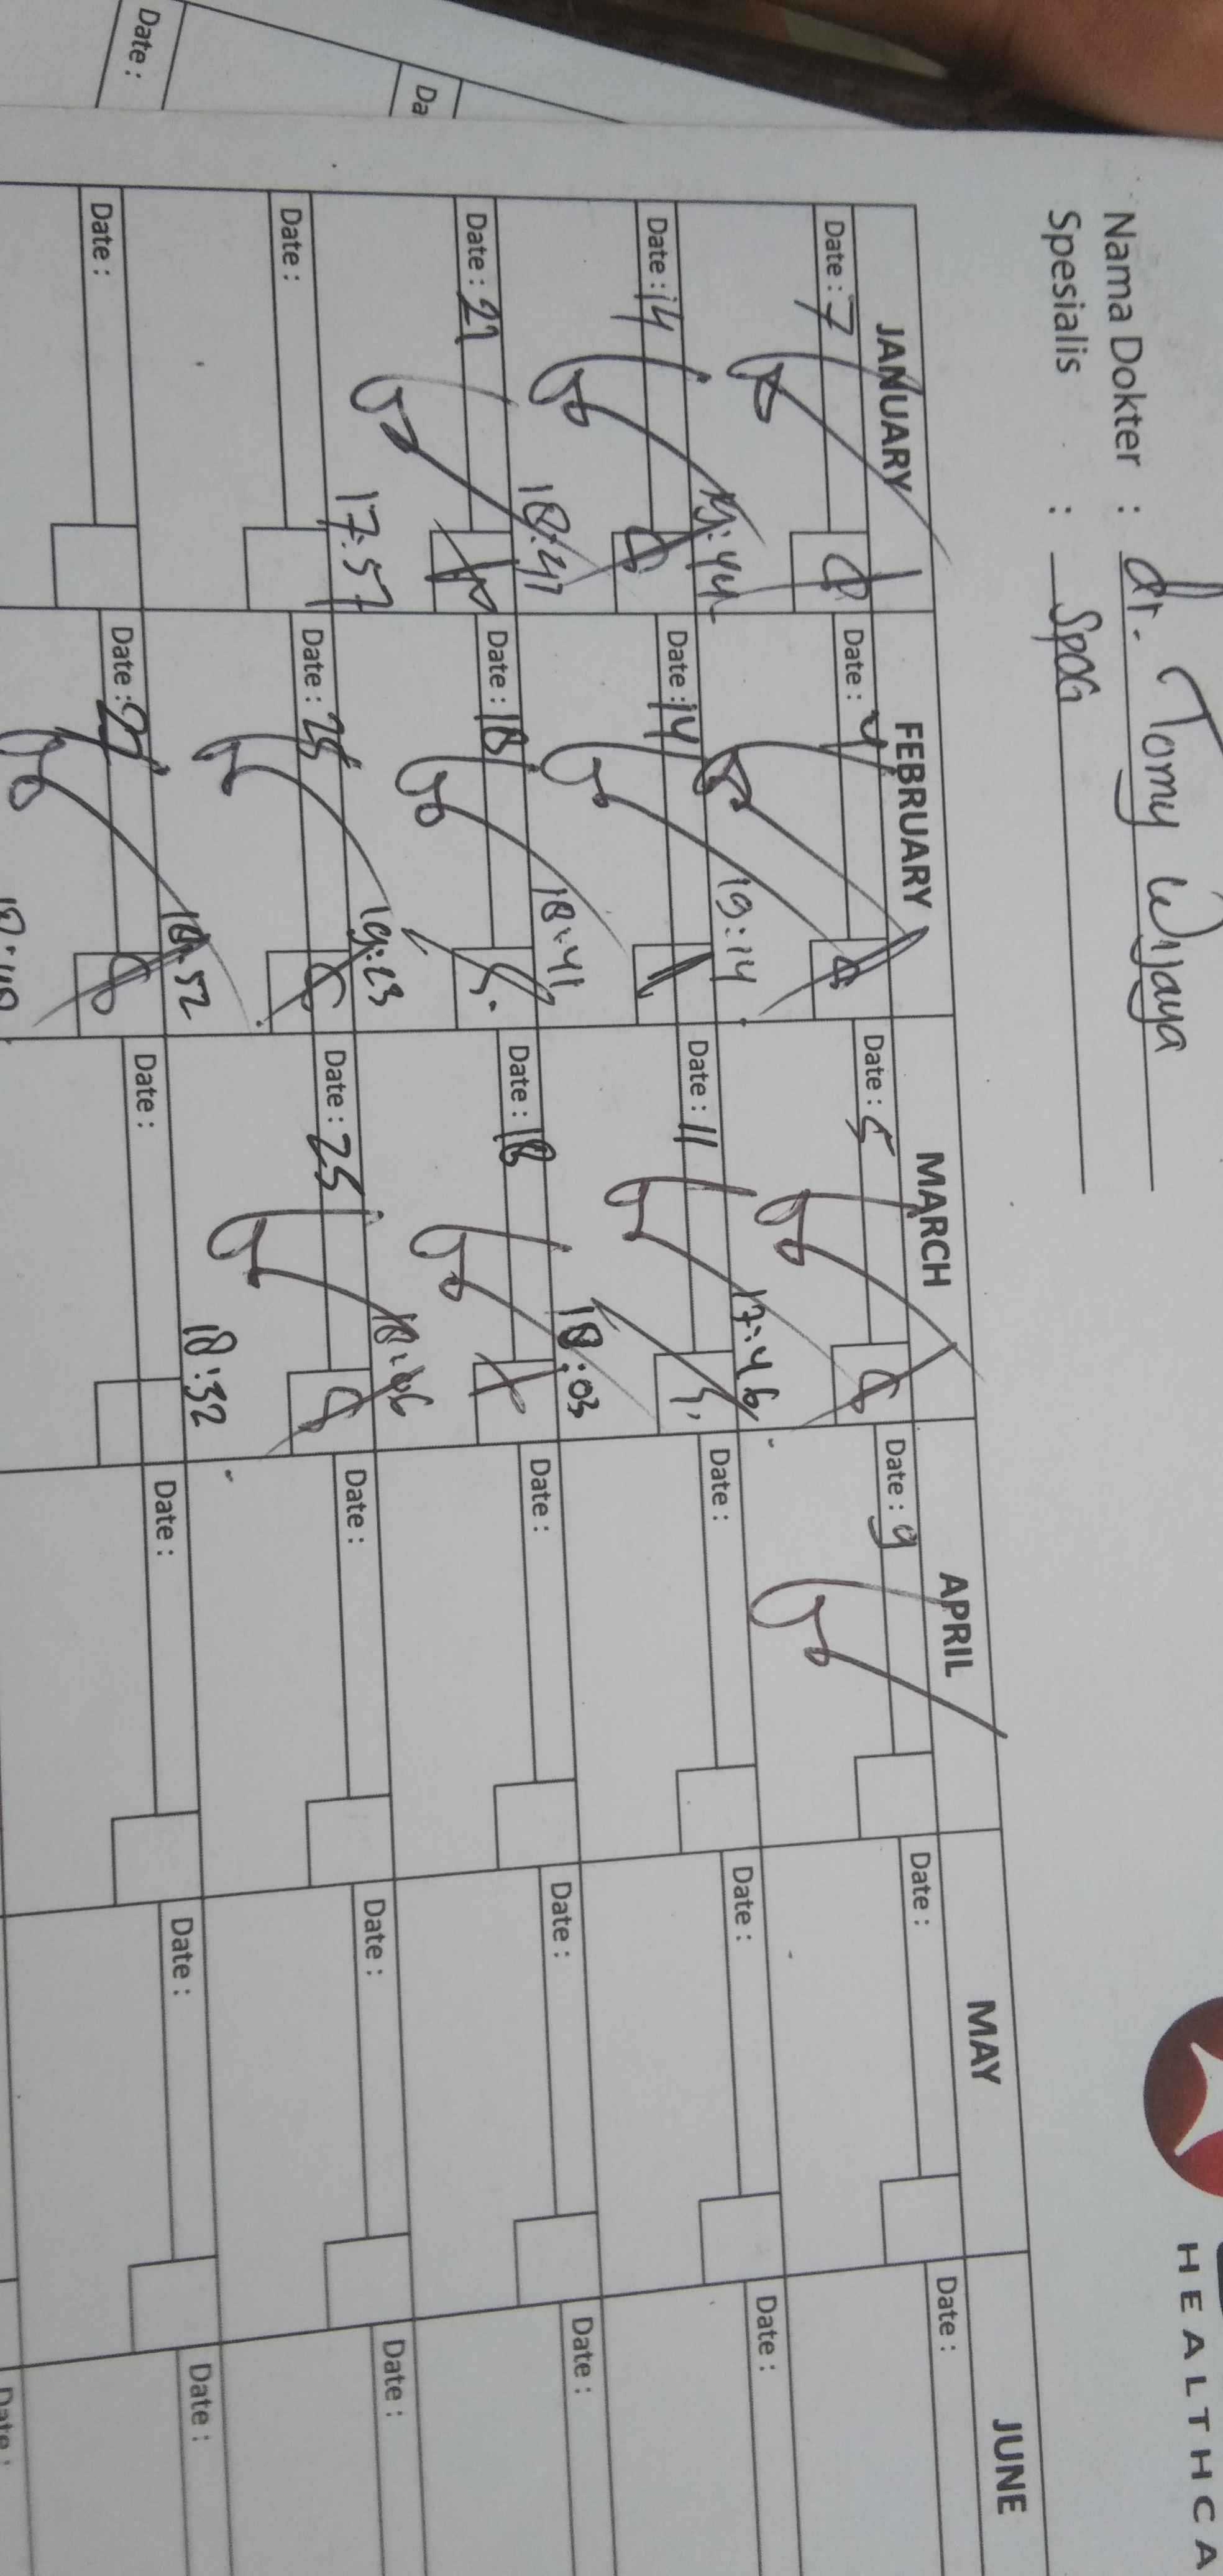 Date :
Da
Nama Dokter : dr. Tomy Wijaya
Spesialis : SpOG
HEALTHCA
JANUARY FEBRUARY MARCH APRIL MAY JUNE
Date : 7 Date : 4 Date : 5 Date : 9 Date : Date :
19:44 19:14 17:46
Date : 14 Date : 14 Date : 11 Date : Date : Date :
18:41 18:41 18:03
Date : 21 Date : 18 Date : 18 Date : Date : Date :
17:57 19:23
Date : Date : 25 Date : 25 Date : Date : Date :
18:52 18:32
Date : Date : Date : Date : Date : Date :
Date :